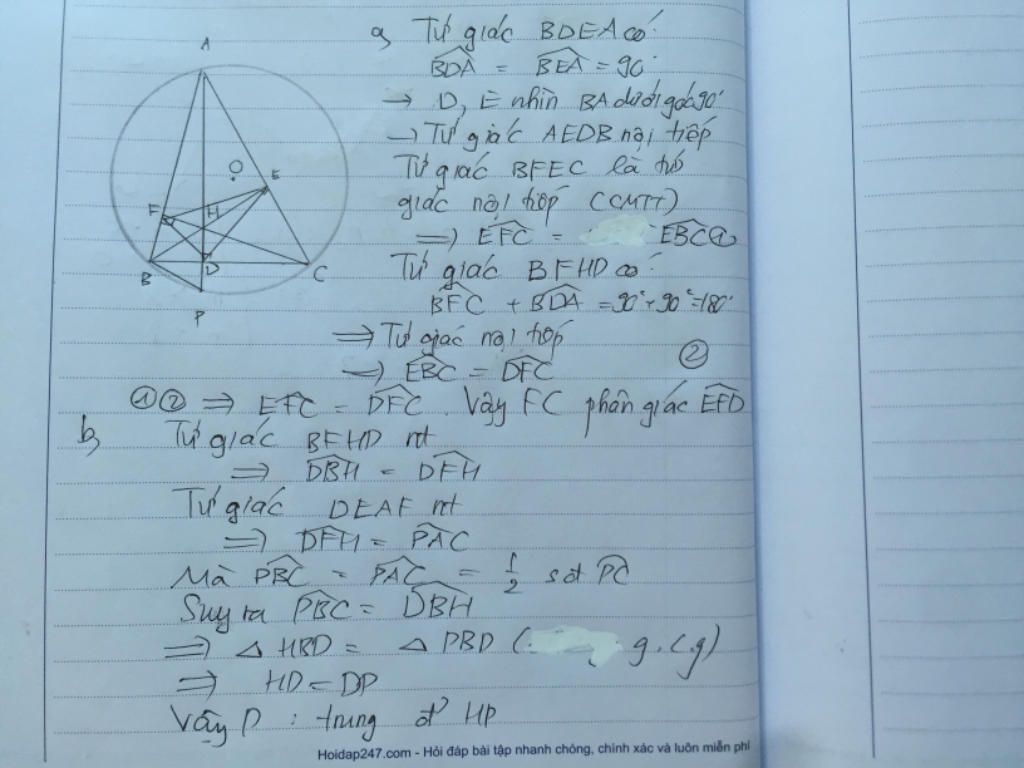 a, Tứ giác BDEA có:
BDA = BEA = 90°
→ D, E nhìn BA dưới góc 90°
→ Tứ giác AEDB nội tiếp
Tứ giác BFEC là tứ
giác nội tiếp (CMTT)
⇒ EFC = EBC ①
Tứ giác BFHD có:
BFC + BDA = 90° + 90° = 180°
⇒ Tứ giác nội tiếp
⇒ EBC = DFC ②
①② ⇒ EFC = DFC. Vậy FC phân giác EFD
b, Tứ giác BFHD nt
⇒ DBH = DFH
Tứ giác DEAF nt
⇒ DFH = PAC
Mà PBC = PAC = 1/2 sđ PC
Suy ra PBC = DBH
⇒ △ HBD = △ PBD ( g.c.g)
⇒ HD = DP
Vậy D : trung đ' HP
A
O
E
F
H
B
D
C
P
Hoidap247.com - Hỏi đáp bài tập nhanh chóng, chính xác và luôn miễn phí